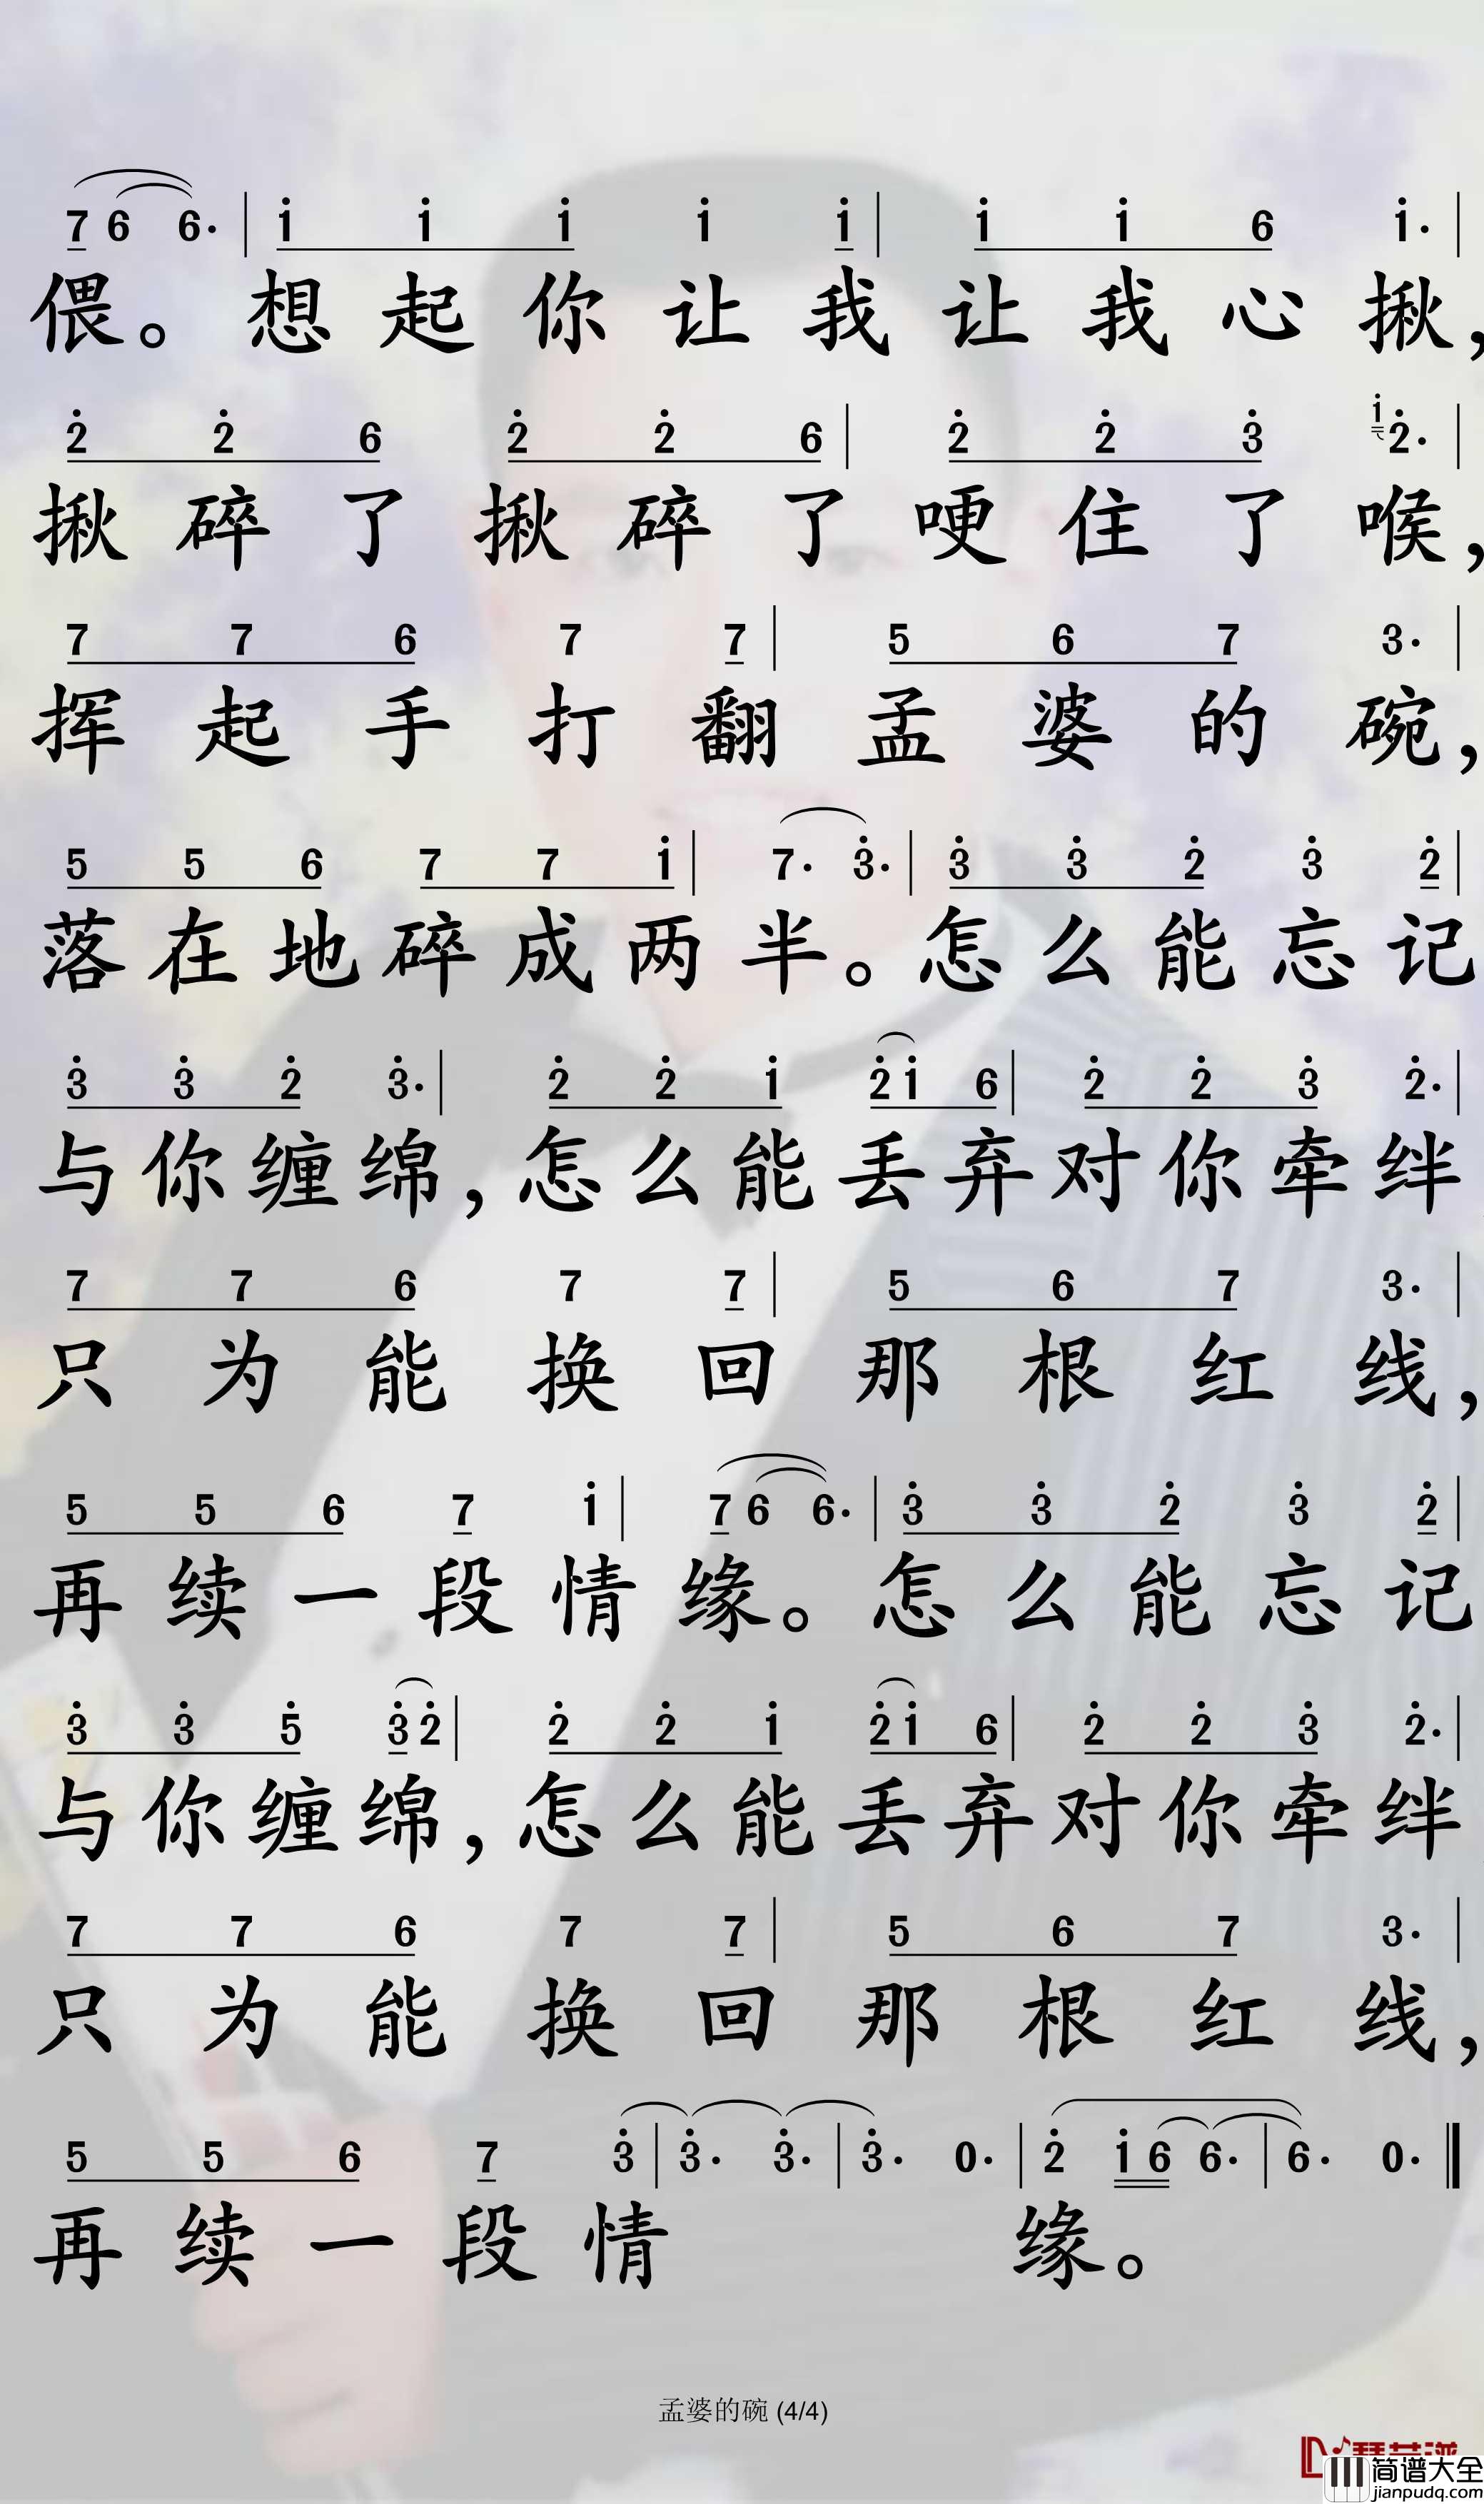 7 6 6· | i̇ i̇ i̇ i̇ i̇ | i̇ i̇ 6 i̇· |
偎。想起你让我让我心揪，
2̇ 2̇ 6 2̇ 2̇ 6 | 2̇ 2̇ 3̇ i̇ 2̇· |
揪碎了揪碎了哽住了喉，
7 7 6 7 7 | 5 6 7 3· |
挥起手打翻孟婆的碗，
5 5 6 7 7 i̇ | 7· 3̇· | 3̇ 3̇ 2̇ 3̇ 2̇ |
落在地碎成两半。怎么能忘记
3̇ 3̇ 2̇ 3̇· | 2̇ 2̇ i̇ 2̇ i̇ 6 | 2̇ 2̇ 3̇ 2̇· |
与你缠绵，怎么能丢弃对你牵绊
7 7 6 7 7 | 5 6 7 3· |
只为能换回那根红线，
5 5 6 7 i̇ | 7 6 6· | 3̇ 3̇ 2̇ 3̇ 2̇ |
再续一段情缘。怎么能忘记
3̇ 3̇ 5̇ 3̇ 2̇ | 2̇ 2̇ i̇ 2̇ i̇ 6 | 2̇ 2̇ 3̇ 2̇· |
与你缠绵，怎么能丢弃对你牵绊
7 7 6 7 7 | 5 6 7 3· |
只为能换回那根红线，
5 5 6 7 3̇ | 3̇· 3̇· | 3̇· 0· | 2̇ i̇ 6 6· | 6· 0· ‖
再续一段情缘。
孟婆的碗 (4/4)
简谱大全
jianpudq.com